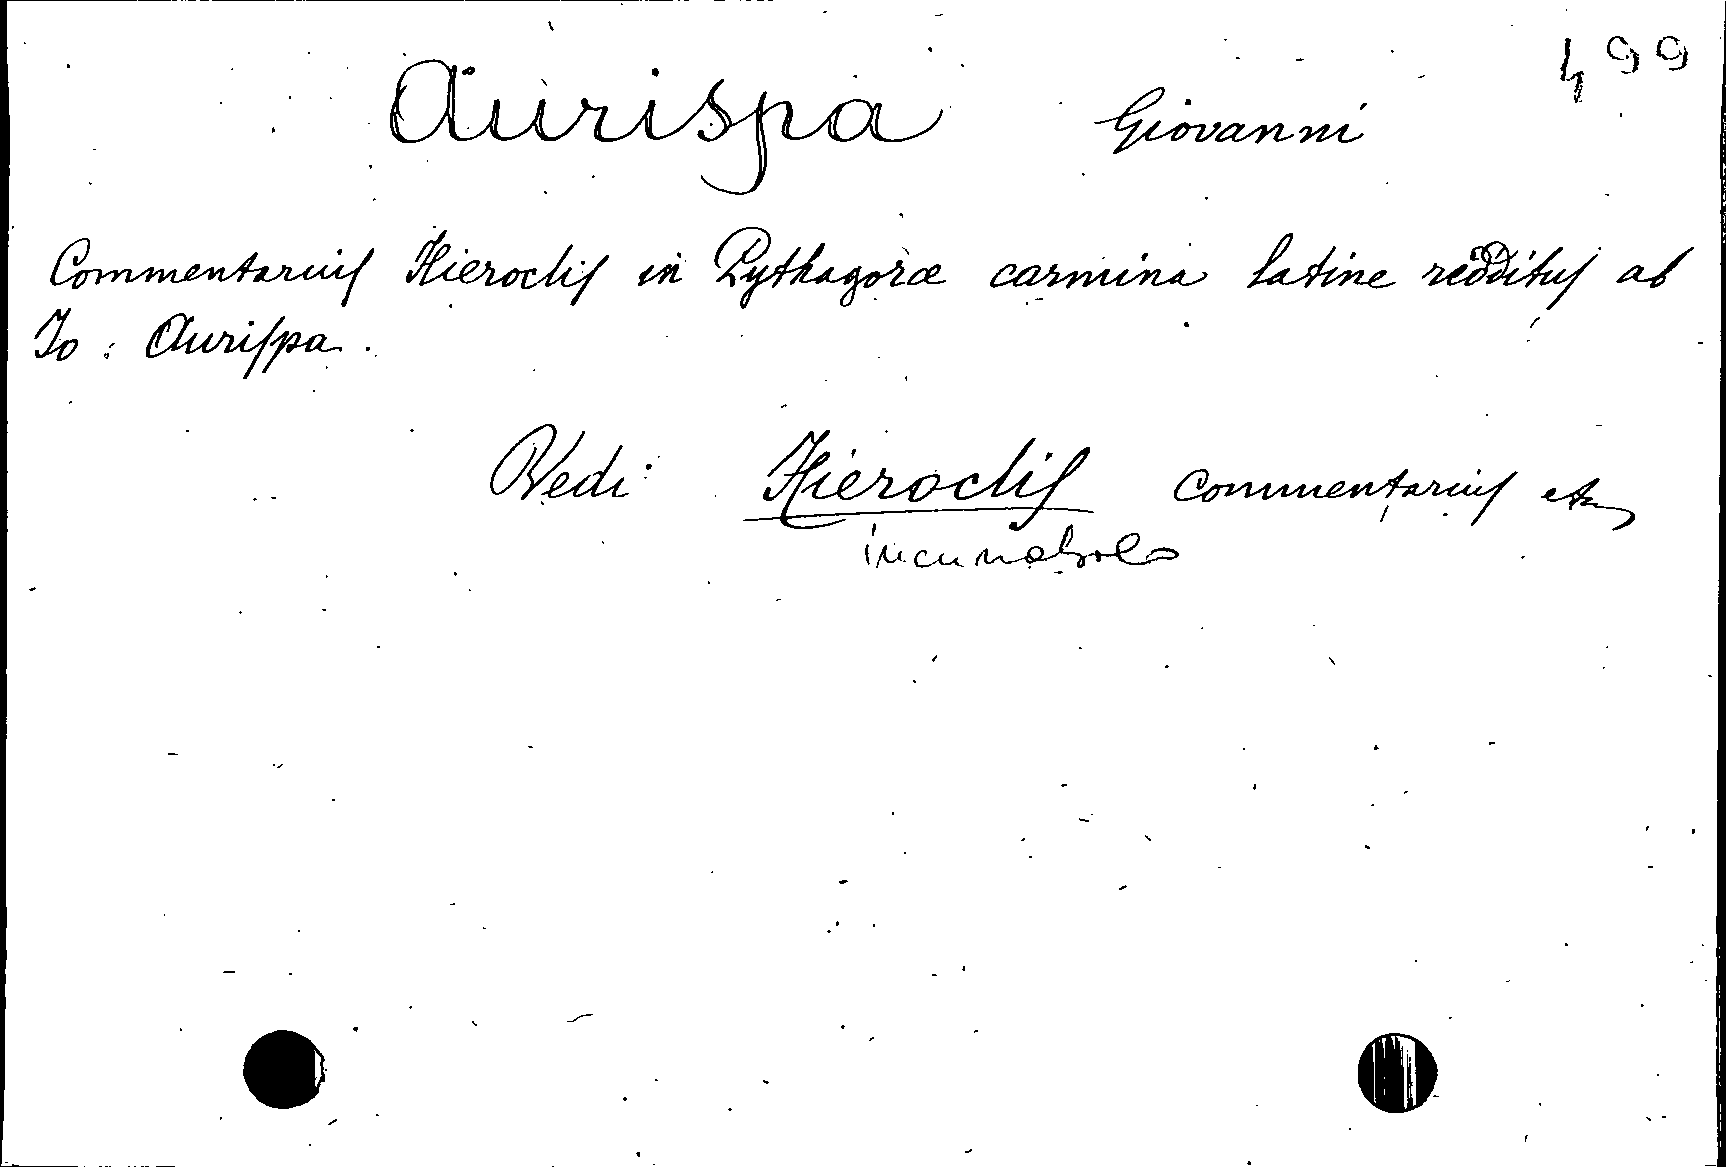 499
Aurispa Giovanni
Commentariuſ Hierocliſ in Pythagoræ carmina latine reddituſ ab
Io: Auriſpa.
Vedi Hierocliſ commentariuſ etc
incunabolo